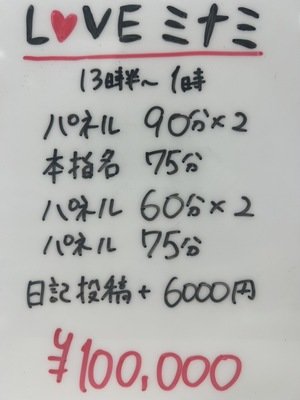 L♥VE ミナミ
13時半〜1時
パネル 90分×2
本指名 75分
パネル 60分×2
パネル 75分
日記投稿+6000円
¥100,000